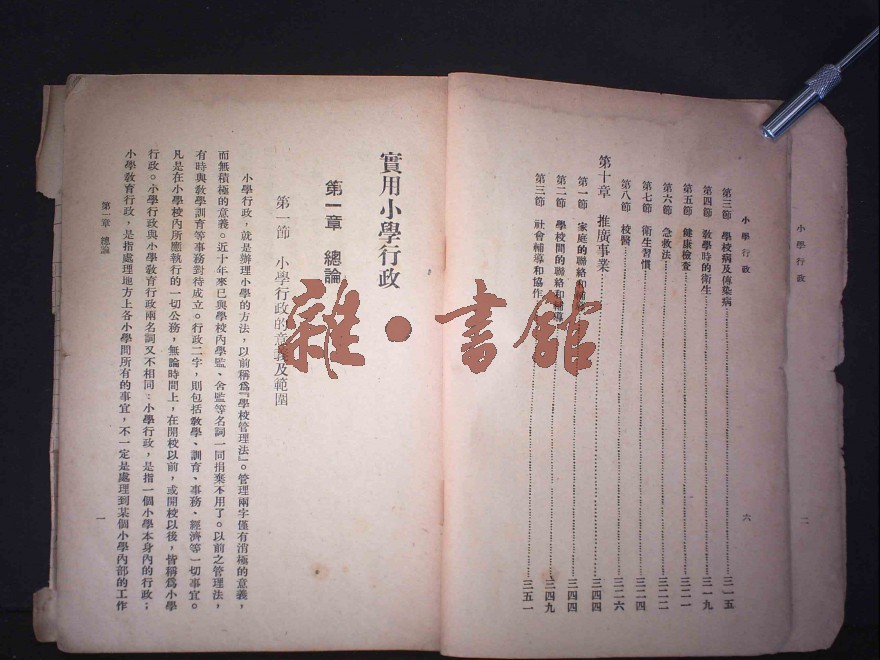 小學行政
二
小學行政
六
第三節 學校病及傳染病 三一五
第四節 教學時的衛生 三一九
第五節 健康檢查 三二一
第六節 急救法 三二二
第七節 衛生習慣 三二四
第八節 校醫 三二六
第十章 推廣事業 三四四
第一節 家庭的聯絡和輔導 三四四
第二節 學校間的聯絡和輔導 三四九
第三節 社會輔導和協作 三五一
實用小學行政
第一章 總論
第一節 小學行政的意義及範圍
小學行政，就是辦理小學的方法，以前稱爲『學校管理法』。管理兩字僅有消極的意義，
而無積極的意義。近十年來已與學校內學監、舍監等名詞一同捐棄不用了。以前之管理法，
有時與敎學訓育等事務對待成立。行政二字，則包括敎學、訓育、事務、經濟等一切事宜。
凡是在小學校內所應執行的一切公務，無論時間上，在開校以前，或開校以後，皆稱爲小學
行政。小學行政與小學敎育行政兩名詞又不相同：小學行政，是指一個小學本身內的行政；
小學敎育行政，是指處理地方上各小學間所有的事宜，不一定是處理到某個小學內部的工作
第一章 總論
一
雜·書館